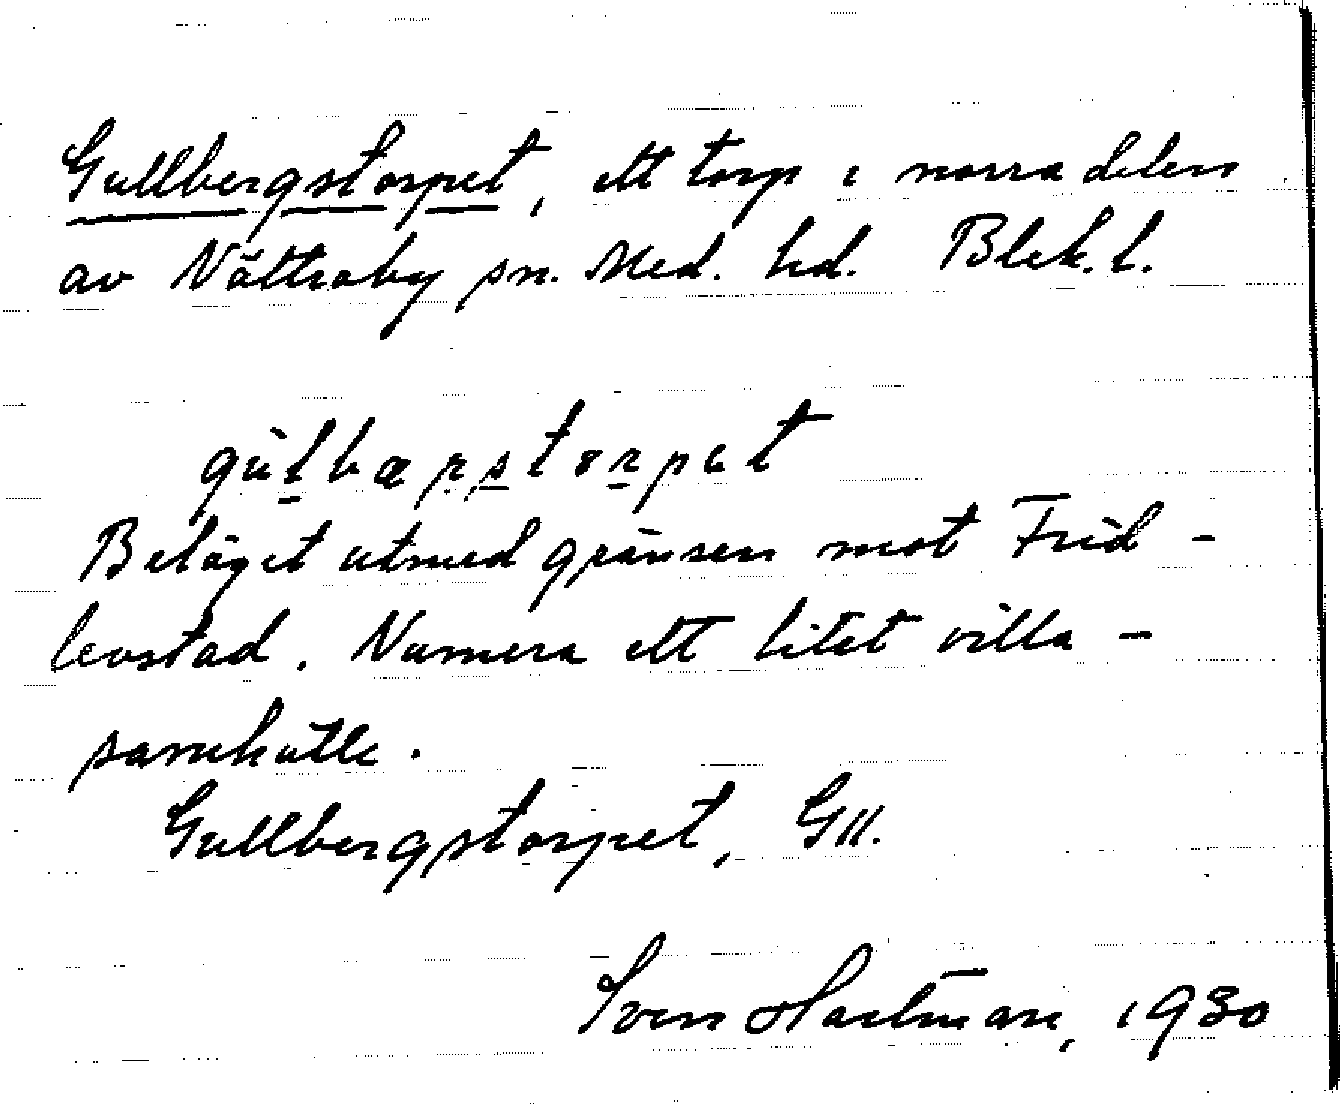 Gullbergstorpet, ett torp i norra delen
av Nättraby sn. Med. hd. Blek. l.
gu̇lbærstorpet
Beläget utmed gränsen mot Frid-
levstad. Numera ett litet villa-
samhälle.
Gullbergstorpet, GII.
Sven Hartman, 1930